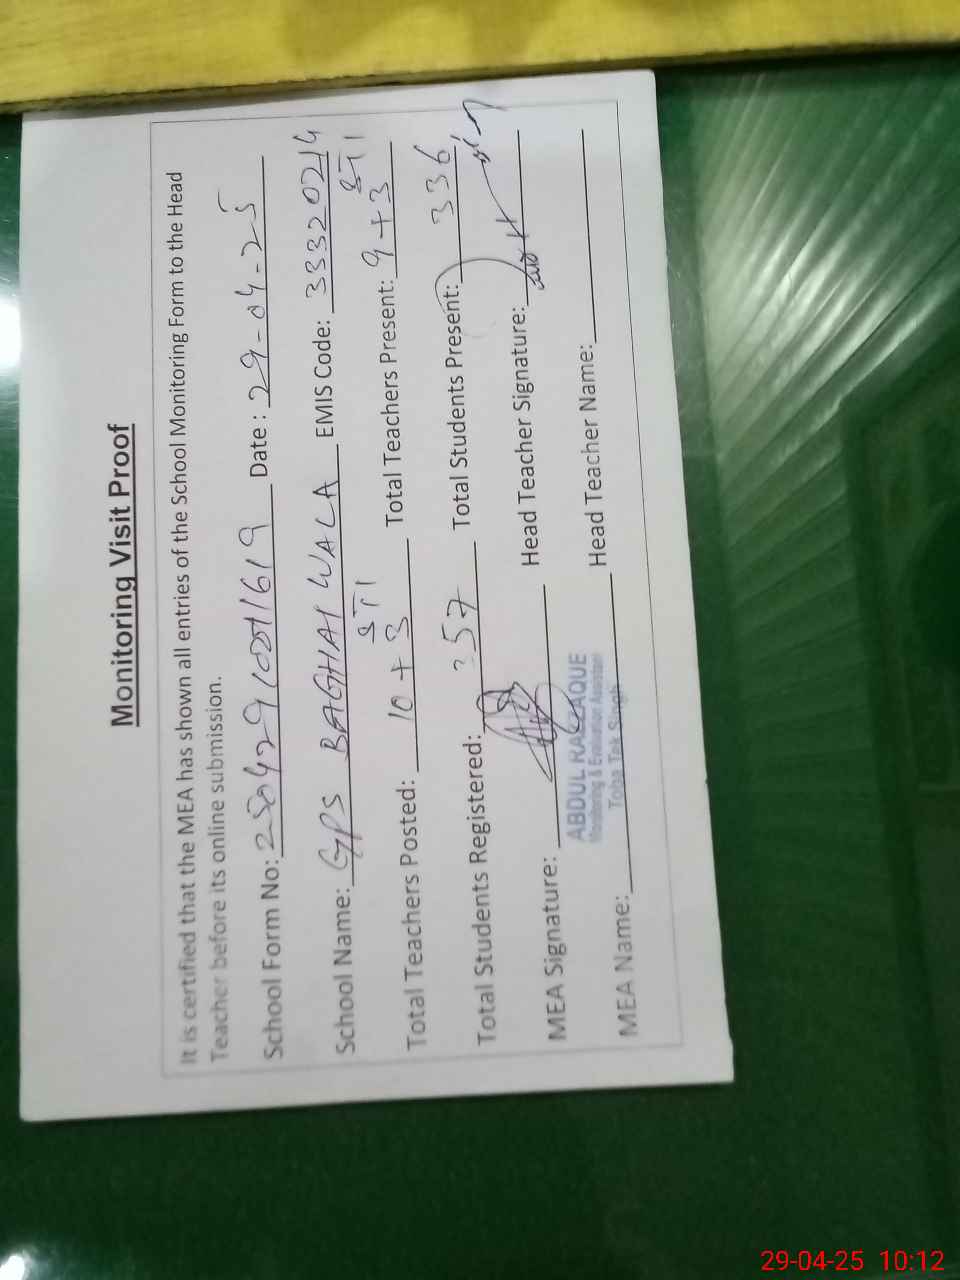 Monitoring Visit Proof
It is certified that the MEA has shown all entries of the School Monitoring Form to the Head
Teacher before its online submission.
School Form No: Date: 29-04-25
School Name: GPS BAGHAI WALA EMIS Code: 33320214
Total Teachers Posted: 10 + 3 STI Total Teachers Present: 9 + 3 STI
Total Students Registered: 357 Total Students Present: 336
MEA Signature: Head Teacher Signature:
ABDUL RAZZAQUE
Monitoring & Evaluation Assistant
Toba Tek Singh
MEA Name: Head Teacher Name:
29-04-25 10:12